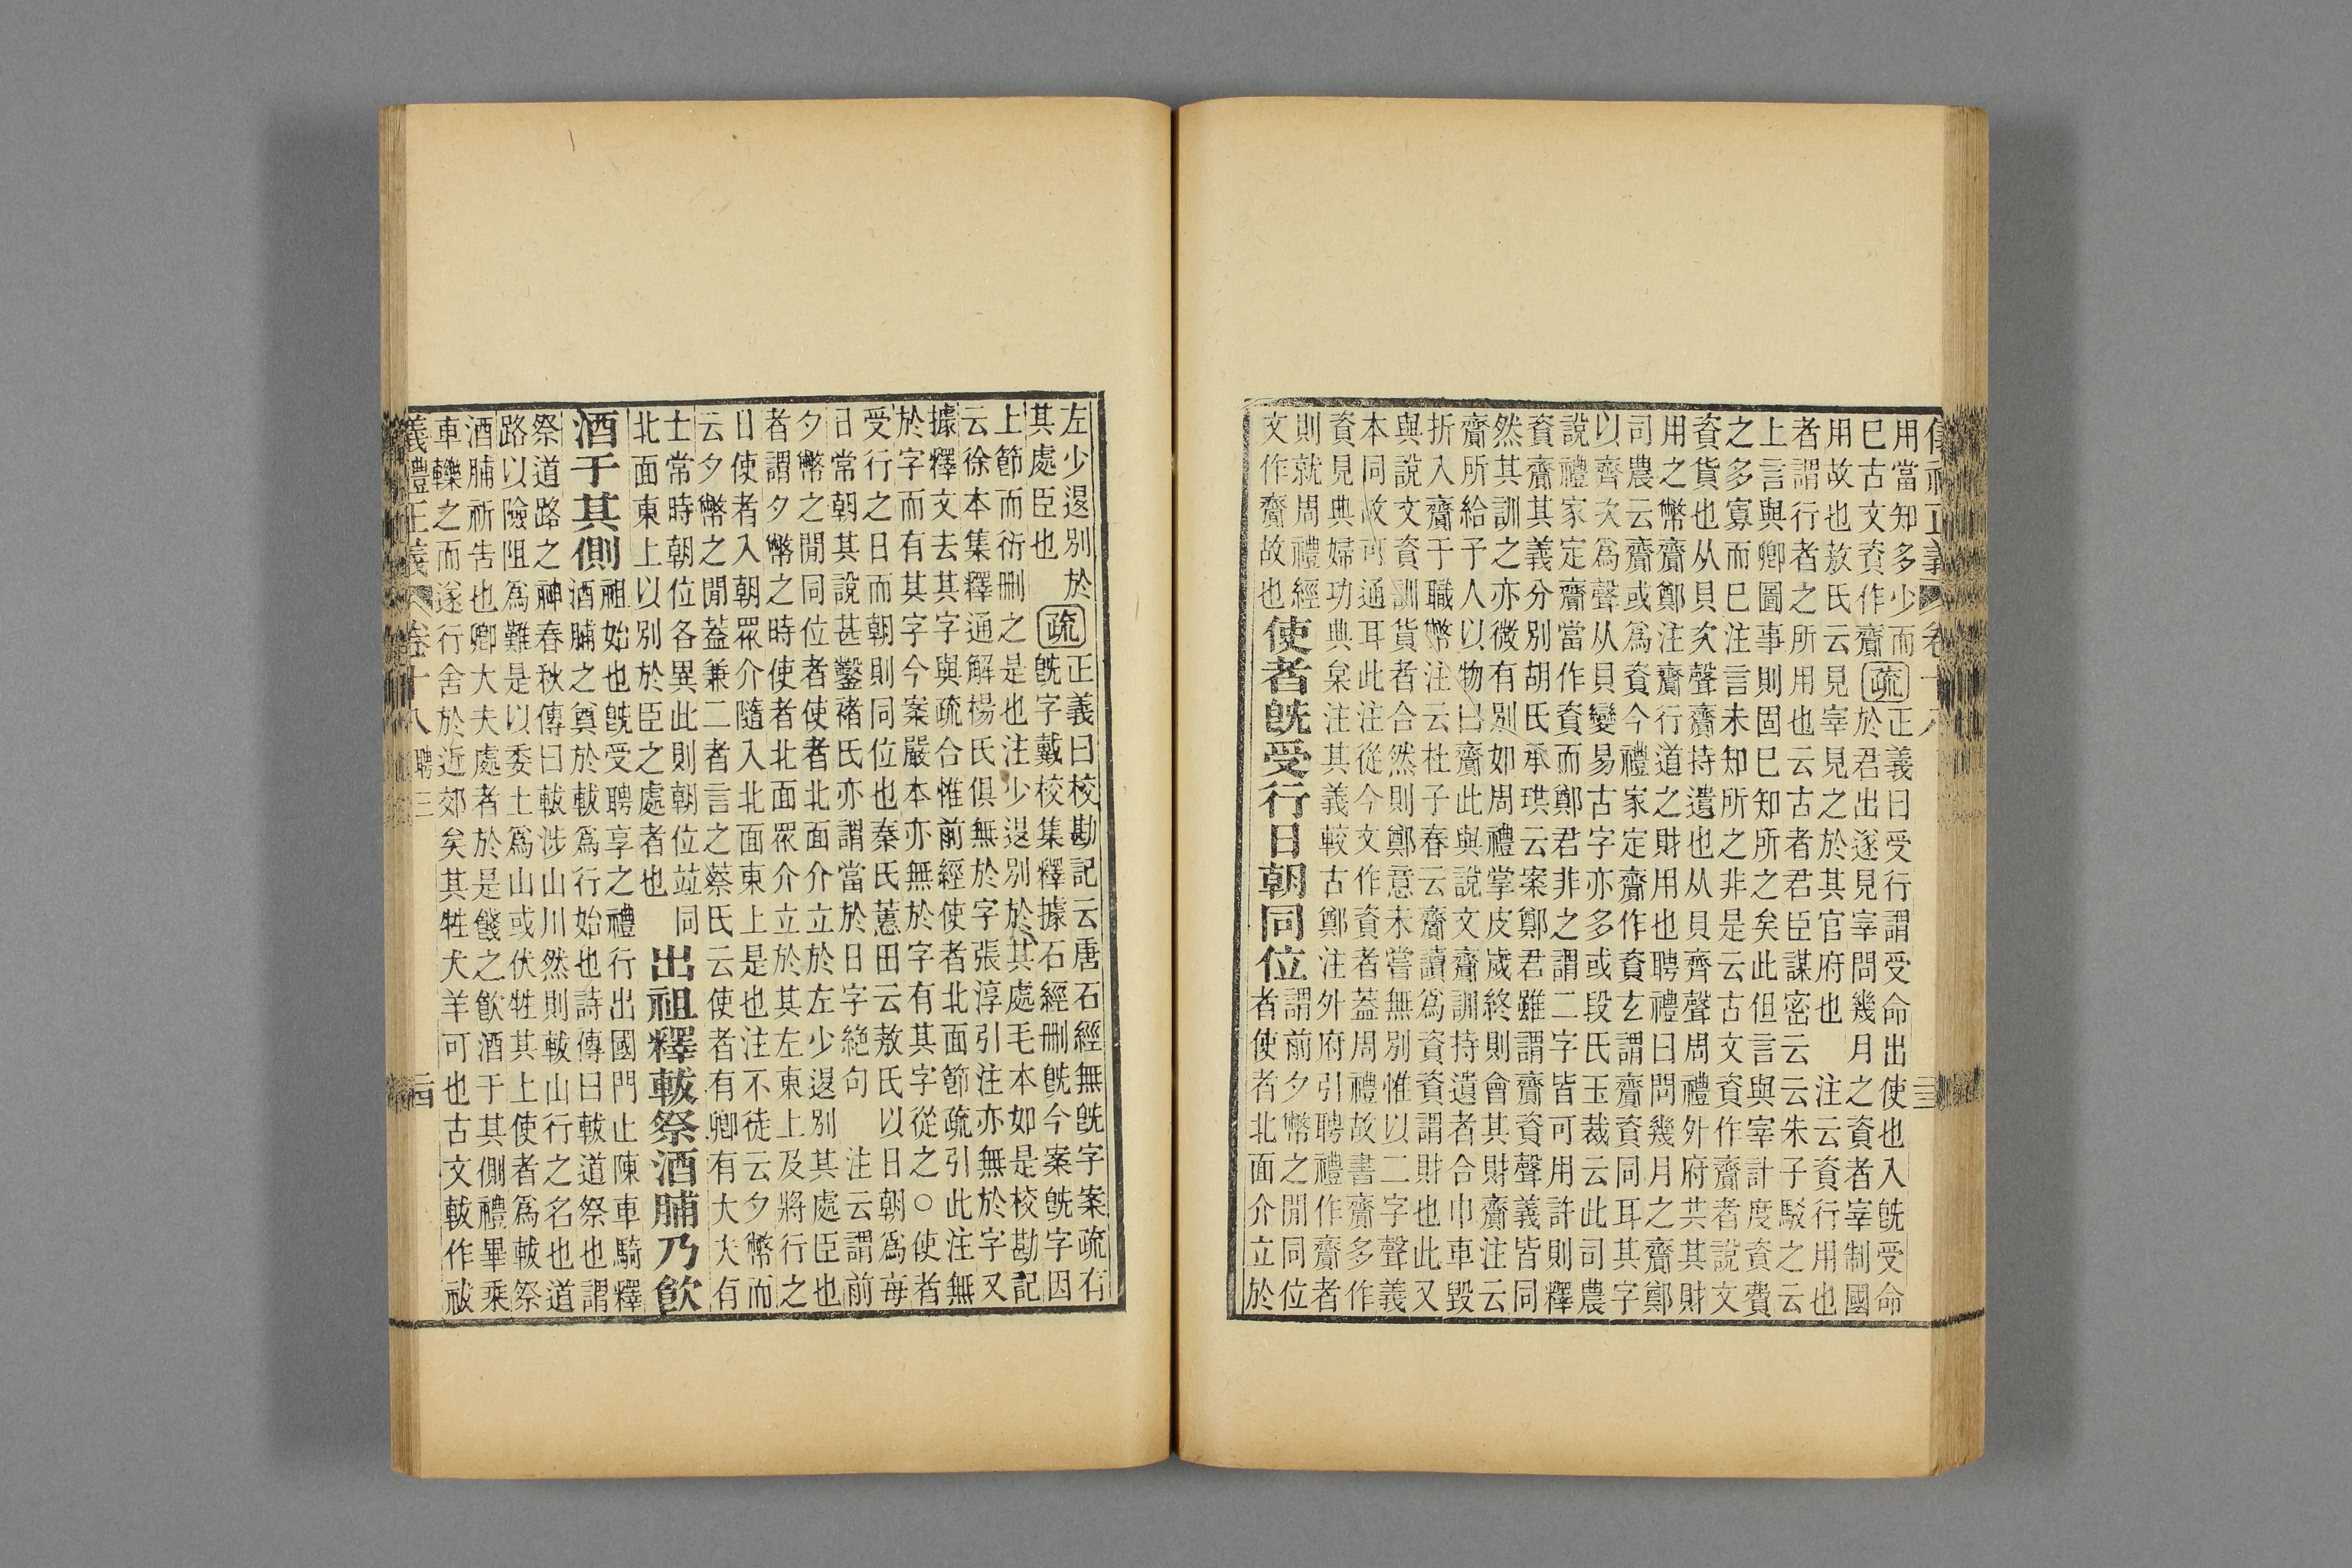 正義
用當知多少而
已古文資作齎
疏
正義曰受行謂受命出使也入旣受命
於君出遂見宰問幾月之資者宰制國
用故也敖氏云見宰見之於其官府也　注云資行用也
者謂行者之所用也云古者君臣謀密云云朱子駁之云
上言與卿圖事則固已知所之矣此但言與宰計度資費
之多寡而已注言未知所之非是云古文資作齎者說文
資貨也从貝次聲齎持遺也从貝齊聲周禮外府共其財
用之幣齎鄭注齎行道之財用也聘禮曰問幾月之齎鄭
司農云齎或爲資今禮家定齎作資玄謂齎資同耳其字
以齊次爲聲从貝變易古字亦多或段氏玉裁云此司農
說禮家定齎當作資而鄭君非之謂二字皆可用許則釋
資齎其義分別胡氏承珙云案鄭君雖謂齎資聲義皆同
然其訓之亦微有別如周禮掌皮歲終則會其財齎注云
齎所給予人以物曰齎此與說文齎訓持遺者合巾車毀
折入齎于職幣注云杜子春云齎讀爲資資謂財也此又
與說文資訓貨者合然則鄭意未嘗無別惟以二字聲義
本同故可通耳此注從今文作資者蓋周禮故書齎多作
資見典婦功典枲注其義較古鄭注外府引聘禮作齎者
則就周禮經
文作齎故也
使者旣受行日朝同位
謂前夕幣之閒同位
者使者北面介立於
左少退別於
其處臣也
疏
正義曰校勘記云唐石經無旣字案疏右
旣字戴校集釋據石經刪旣今案旣字因
上節而衍刪之是也注少退別於其處毛本如是校勘記
云徐本集釋通解楊氏俱無於字張淳引注亦無於字又
據釋文去其字與疏合惟前經使者北面節疏引此注無
於字而有其字今案嚴本亦無於字有其字從之○使者
受行之日而朝則同位也秦氏蕙田云敖氏以日朝爲每
日常朝其說甚鑿褚氏亦謂當於日字絶句　注云謂前
夕幣之閒同位者使者北面介立於左少退別其處臣也
者謂夕幣之時使者北面眾介立於其左東上及將行之
日使者入朝眾介隨入北面東上是也注不徒云夕幣而
云夕幣之閒蓋兼二者言之蔡氏云使者有卿有大夫有
士常時朝位各異此則朝位竝同
北面東上以別於臣之處者也
出祖釋軷祭酒脯乃飮
酒于其側
祖始也旣受聘享之禮行出國門止陳車騎釋
酒脯之奠於軷爲行始也詩傳曰軷道祭也謂
祭道路之神春秋傳曰軷涉山川然則軷山行之名也道
路以險阻爲難是以委土爲山或伏牲其上使者爲軷祭
酒脯祈告也卿大夫處者於是餞之飮酒于其側禮畢乘
車轢之而遂行舍於近郊矣其牲犬羊可也古文軷作祓
義禮正義　卷十八　聘三